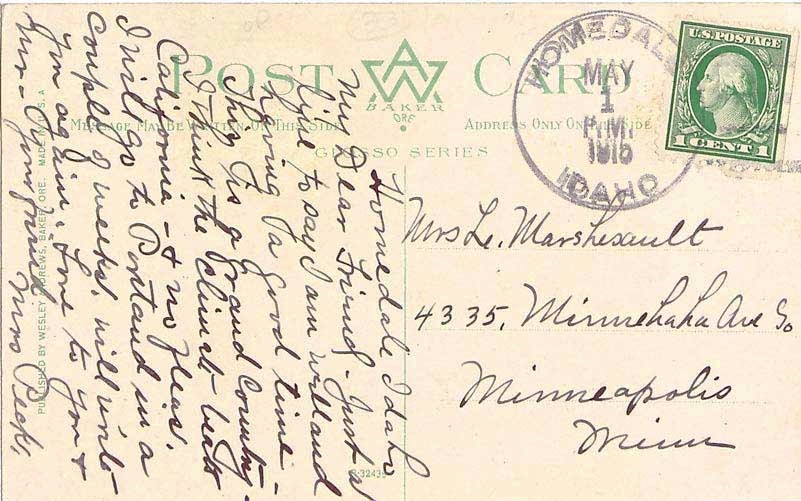 POST CARD
AW
BAKER
ORE.
MESSAGE MAY BE WRITTEN ON THIS SIDE
ADDRESS ONLY ON THIS SIDE
SERIES
PUBLISHED BY WESLEY ANDREWS, BAKER, ORE. MADE IN U.S.A
HOMEDALE
MAY
1
P.M.
1915
IDAHO
U.S. POSTAGE
1 CENT 1
Homedale Idaho
My Dear Friend - Just a
line to say I am well and
having a good time -
This is a grand country -
I think the climate beats
California - & no fleas.
I will go to Portland in a
couple of weeks. will write
you again. Love to you &
Mr - Your friend
Mrs Peck,
Mrs L. Marshesault
4335, Minnehaha Ave So
Minneapolis
Minn
R-3243